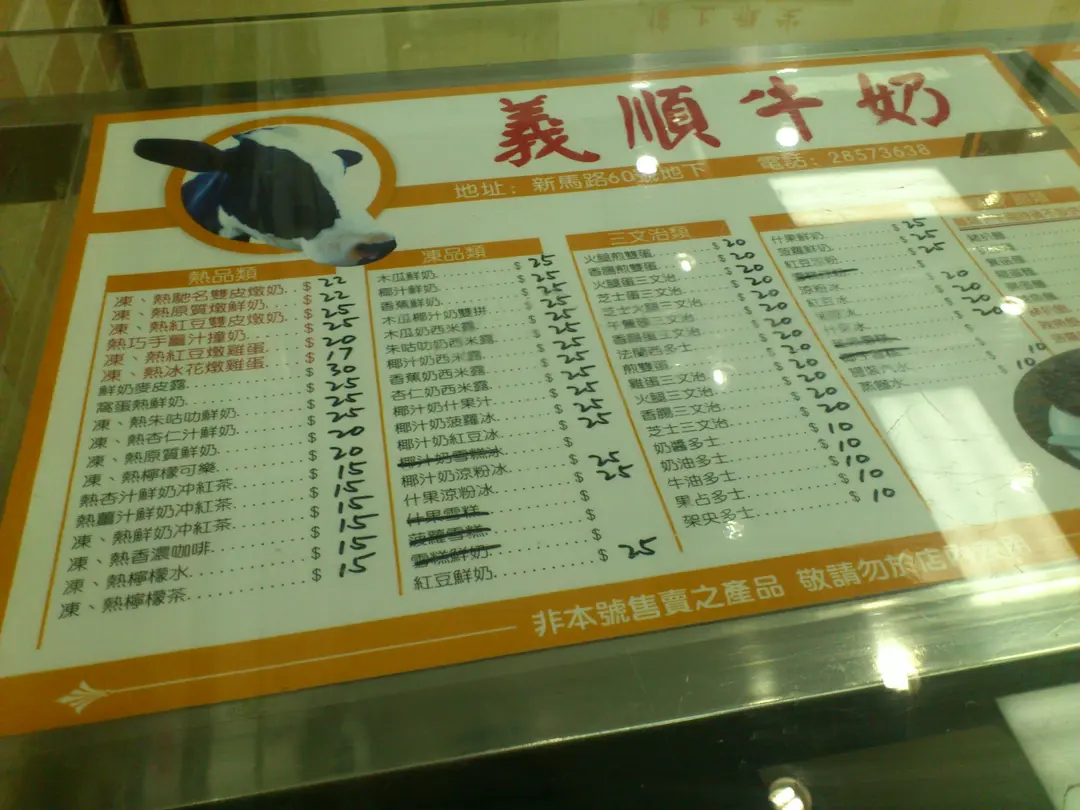 義順牛奶
地址：新馬路60號地下 電話：28573638
熱品類
凍、熱馳名雙皮燉奶 $ 22
凍、熱原質燉鮮奶 $ 22
凍、熱紅豆雙皮燉奶 $ 25
熱巧手薑汁撞奶 $ 25
凍、熱紅豆燉雞蛋 $ 20
凍、熱冰花燉雞蛋 $ 17
鮮奶麥皮露 $ 30
窩蛋熱鮮奶 $ 25
凍、熱朱咕叻鮮奶 $ 25
凍、熱杏仁汁鮮奶 $ 20
凍、熱原質鮮奶 $ 20
凍、熱檸檬可樂 $ 15
熱杏汁鮮奶冲紅茶 $ 15
熱薑汁鮮奶冲紅茶 $ 15
凍、熱鮮奶冲紅茶 $ 15
凍、熱香濃咖啡 $ 15
凍、熱檸檬水
凍、熱檸檬茶
凍品類
木瓜鮮奶 $ 25
椰汁鮮奶 $ 25
香蕉鮮奶 $ 25
木瓜椰汁奶雙拼 $ 25
木瓜奶西米露 $ 25
朱咕叻奶西米露 $ 25
椰汁奶西米露 $ 25
香蕉奶西米露 $ 25
杏仁奶西米露 $ 25
椰汁奶什果汁 $ 25
椰汁奶菠蘿冰 $ 25
椰汁奶紅豆冰
椰汁奶雪糕冰
椰汁奶涼粉冰 $ 25
什果涼粉冰 $ 25
什果雪糕 $
菠蘿雪糕 $
雪糕鮮奶 $
紅豆鮮奶 $ 25
三文治類
火腿煎雙蛋 $ 20
香腸煎雙蛋 $ 20
火腿蛋三文治 $ 20
芝士蛋三文治 $ 20
芝士火腿三文治 $ 20
午餐蛋三文治 $ 20
香腸蛋三文治 $ 20
法蘭西多士 $ 20
煎雙蛋 $ 20
雞蛋三文治 $ 20
火腿三文治 $ 20
香腸三文治 $ 20
芝士三文治 $ 20
奶醬多士 $ 10
奶油多士 $ 10
牛油多士 $ 10
果占多士 $ 10
架央多士
什果鮮奶 $ 25
菠蘿鮮奶 $ 25
紅豆涼粉 $ 25
涼粉冰 $ 20
紅豆冰 $ 20
$ 20
$ 10
$ 10
非本號售賣之產品 敬請勿於店內